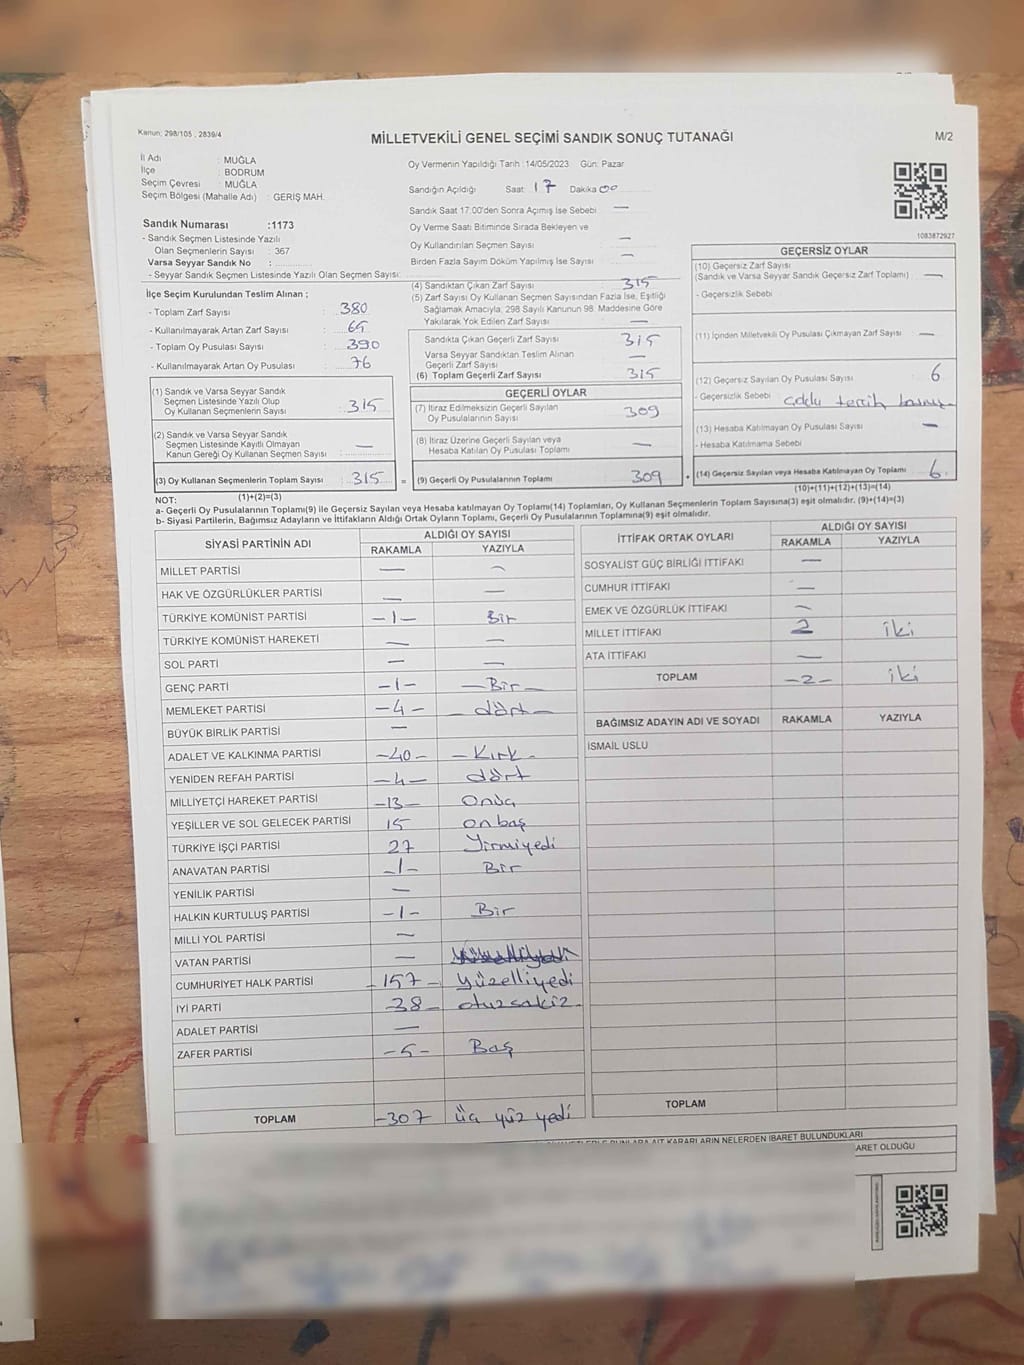 Kanun; 298/105 , 2839/4
MİLLETVEKİLİ GENEL SEÇİMİ SANDIK SONUÇ TUTANAĞI
M/2
İl Adı : MUĞLA
İlçe : BODRUM
Seçim Çevresi : MUĞLA
Seçim Bölgesi (Mahalle Adı) : GERİŞ MAH.
Sandık Numarası :1173
- Sandık Seçmen Listesinde Yazılı
Olan Seçmenlerin Sayısı : 367
Varsa Seyyar Sandık No :
- Seyyar Sandık Seçmen Listesinde Yazılı Olan Seçmen Sayısı:
Oy Vermenin Yapıldığı Tarih :14/05/2023 Gün: Pazar
Sandığın Açıldığı Saat 17 Dakika 00
Sandık Saat 17:00'den Sonra Açımış İse Sebebi —
Oy Verme Saati Bitiminde Sırada Bekleyen ve
Oy Kullandırılan Seçmen Sayısı —
Birden Fazla Sayım Döküm Yapılmış İse Sayısı —
1083872927
İlçe Seçim Kurulundan Teslim Alınan ;
- Toplam Zarf Sayısı : 380
- Kullanılmayarak Artan Zarf Sayısı : 65
- Toplam Oy Pusulası Sayısı : 390
- Kullanılmayarak Artan Oy Pusulası : 76
(1) Sandık ve Varsa Seyyar Sandık
Seçmen Listesinde Yazılı Olup
Oy Kullanan Seçmenlerin Sayısı : 315
(2) Sandık ve Varsa Seyyar Sandık
Seçmen Listesinde Kayıtlı Olmayan
Kanun Gereği Oy Kullanan Seçmen Sayısı : —
(3) Oy Kullanan Seçmenlerin Toplam Sayısı : 315 =
(1)+(2)=(3)
(4) Sandıktan Çıkan Zarf Sayısı : 315
(5) Zarf Sayısı Oy Kullanan Seçmen Sayısından Fazla İse, Eşitliği
Sağlamak Amacıyla, 298 Sayılı Kanunun 98. Maddesine Göre
Yakılarak Yok Edilen Zarf Sayısı : —
Sandıkta Çıkan Geçerli Zarf Sayısı 315
Varsa Seyyar Sandıktan Teslim Alınan
Geçerli Zarf Sayısı —
(6) Toplam Geçerli Zarf Sayısı : 315
GEÇERLİ OYLAR
(7) İtiraz Edilmeksizin Geçerli Sayılan
Oy Pusulalarının Sayısı : 309
(8) İtiraz Üzerine Geçerli Sayılan veya
Hesaba Katılan Oy Pusulası Toplamı —
(9) Geçerli Oy Pusulalarının Toplamı : 309 +
GEÇERSİZ OYLAR
(10) Geçersiz Zarf Sayısı
(Sandık ve Varsa Seyyar Sandık Geçersiz Zarf Toplamı) —
- Geçersizlik Sebebi
(11) İçinden Milletvekili Oy Pusulası Çıkmayan Zarf Sayısı —
(12) Geçersiz Sayılan Oy Pusulası Sayısı 6
- Geçersizlik Sebebi
(13) Hesaba Katılmayan Oy Pusulası Sayısı —
- Hesaba Katılmama Sebebi
(14) Geçersiz Sayılan veya Hesaba Katılmayan Oy Toplamı 6
(10)+(11)+(12)+(13)=(14)
NOT:
a- Geçerli Oy Pusulalarının Toplamı(9) ile Geçersiz Sayılan veya Hesaba katılmayan Oy Toplamı(14) Toplamları, Oy Kullanan Seçmenlerin Toplam Sayısına(3) eşit olmalıdır. (9)+(14)=(3)
b- Siyasi Partilerin, Bağımsız Adayların ve İttifakların Aldığı Ortak Oyların Toplamı, Geçerli Oy Pusulalarının Toplamına(9) eşit olmalıdır.
SİYASİ PARTİNİN ADI
ALDIĞI OY SAYISI
RAKAMLA YAZIYLA
MİLLET PARTİSİ — —
HAK VE ÖZGÜRLÜKLER PARTİSİ — —
TÜRKİYE KOMÜNİST PARTİSİ -1- Bir
TÜRKİYE KOMÜNİST HAREKETİ — —
SOL PARTİ — —
GENÇ PARTİ -1- -Bir-
MEMLEKET PARTİSİ -4- -dört-
BÜYÜK BİRLİK PARTİSİ —
ADALET VE KALKINMA PARTİSİ -40- -Kırk-
YENİDEN REFAH PARTİSİ -4- dört
MİLLİYETÇİ HAREKET PARTİSİ -13- Onüç
YEŞİLLER VE SOL GELECEK PARTİSİ 15 onbaş
TÜRKİYE İŞÇİ PARTİSİ 27 Yirmiyedi
ANAVATAN PARTİSİ -1- Bir
YENİLİK PARTİSİ —
HALKIN KURTULUŞ PARTİSİ -1- Bir
MİLLİ YOL PARTİSİ —
VATAN PARTİSİ —
CUMHURİYET HALK PARTİSİ -157- yüzelliyedi
İYİ PARTİ -38- otuzsakiz-
ADALET PARTİSİ —
ZAFER PARTİSİ -5- Baş
TOPLAM -307 üç yüz yedi
İTTİFAK ORTAK OYLARI
ALDIĞI OY SAYISI
RAKAMLA YAZIYLA
SOSYALİST GÜÇ BİRLİĞİ İTTİFAKI —
CUMHUR İTTİFAKI —
EMEK VE ÖZGÜRLÜK İTTİFAKI —
MİLLET İTTİFAKI 2 iki
ATA İTTİFAKI —
TOPLAM -2- iki
BAĞIMSIZ ADAYIN ADI VE SOYADI RAKAMLA YAZIYLA
İSMAİL USLU
TOPLAM
BUNLARA AİT KARARLARIN NELERDEN İBARET BULUNDUKLARI
ARET OLDUĞU